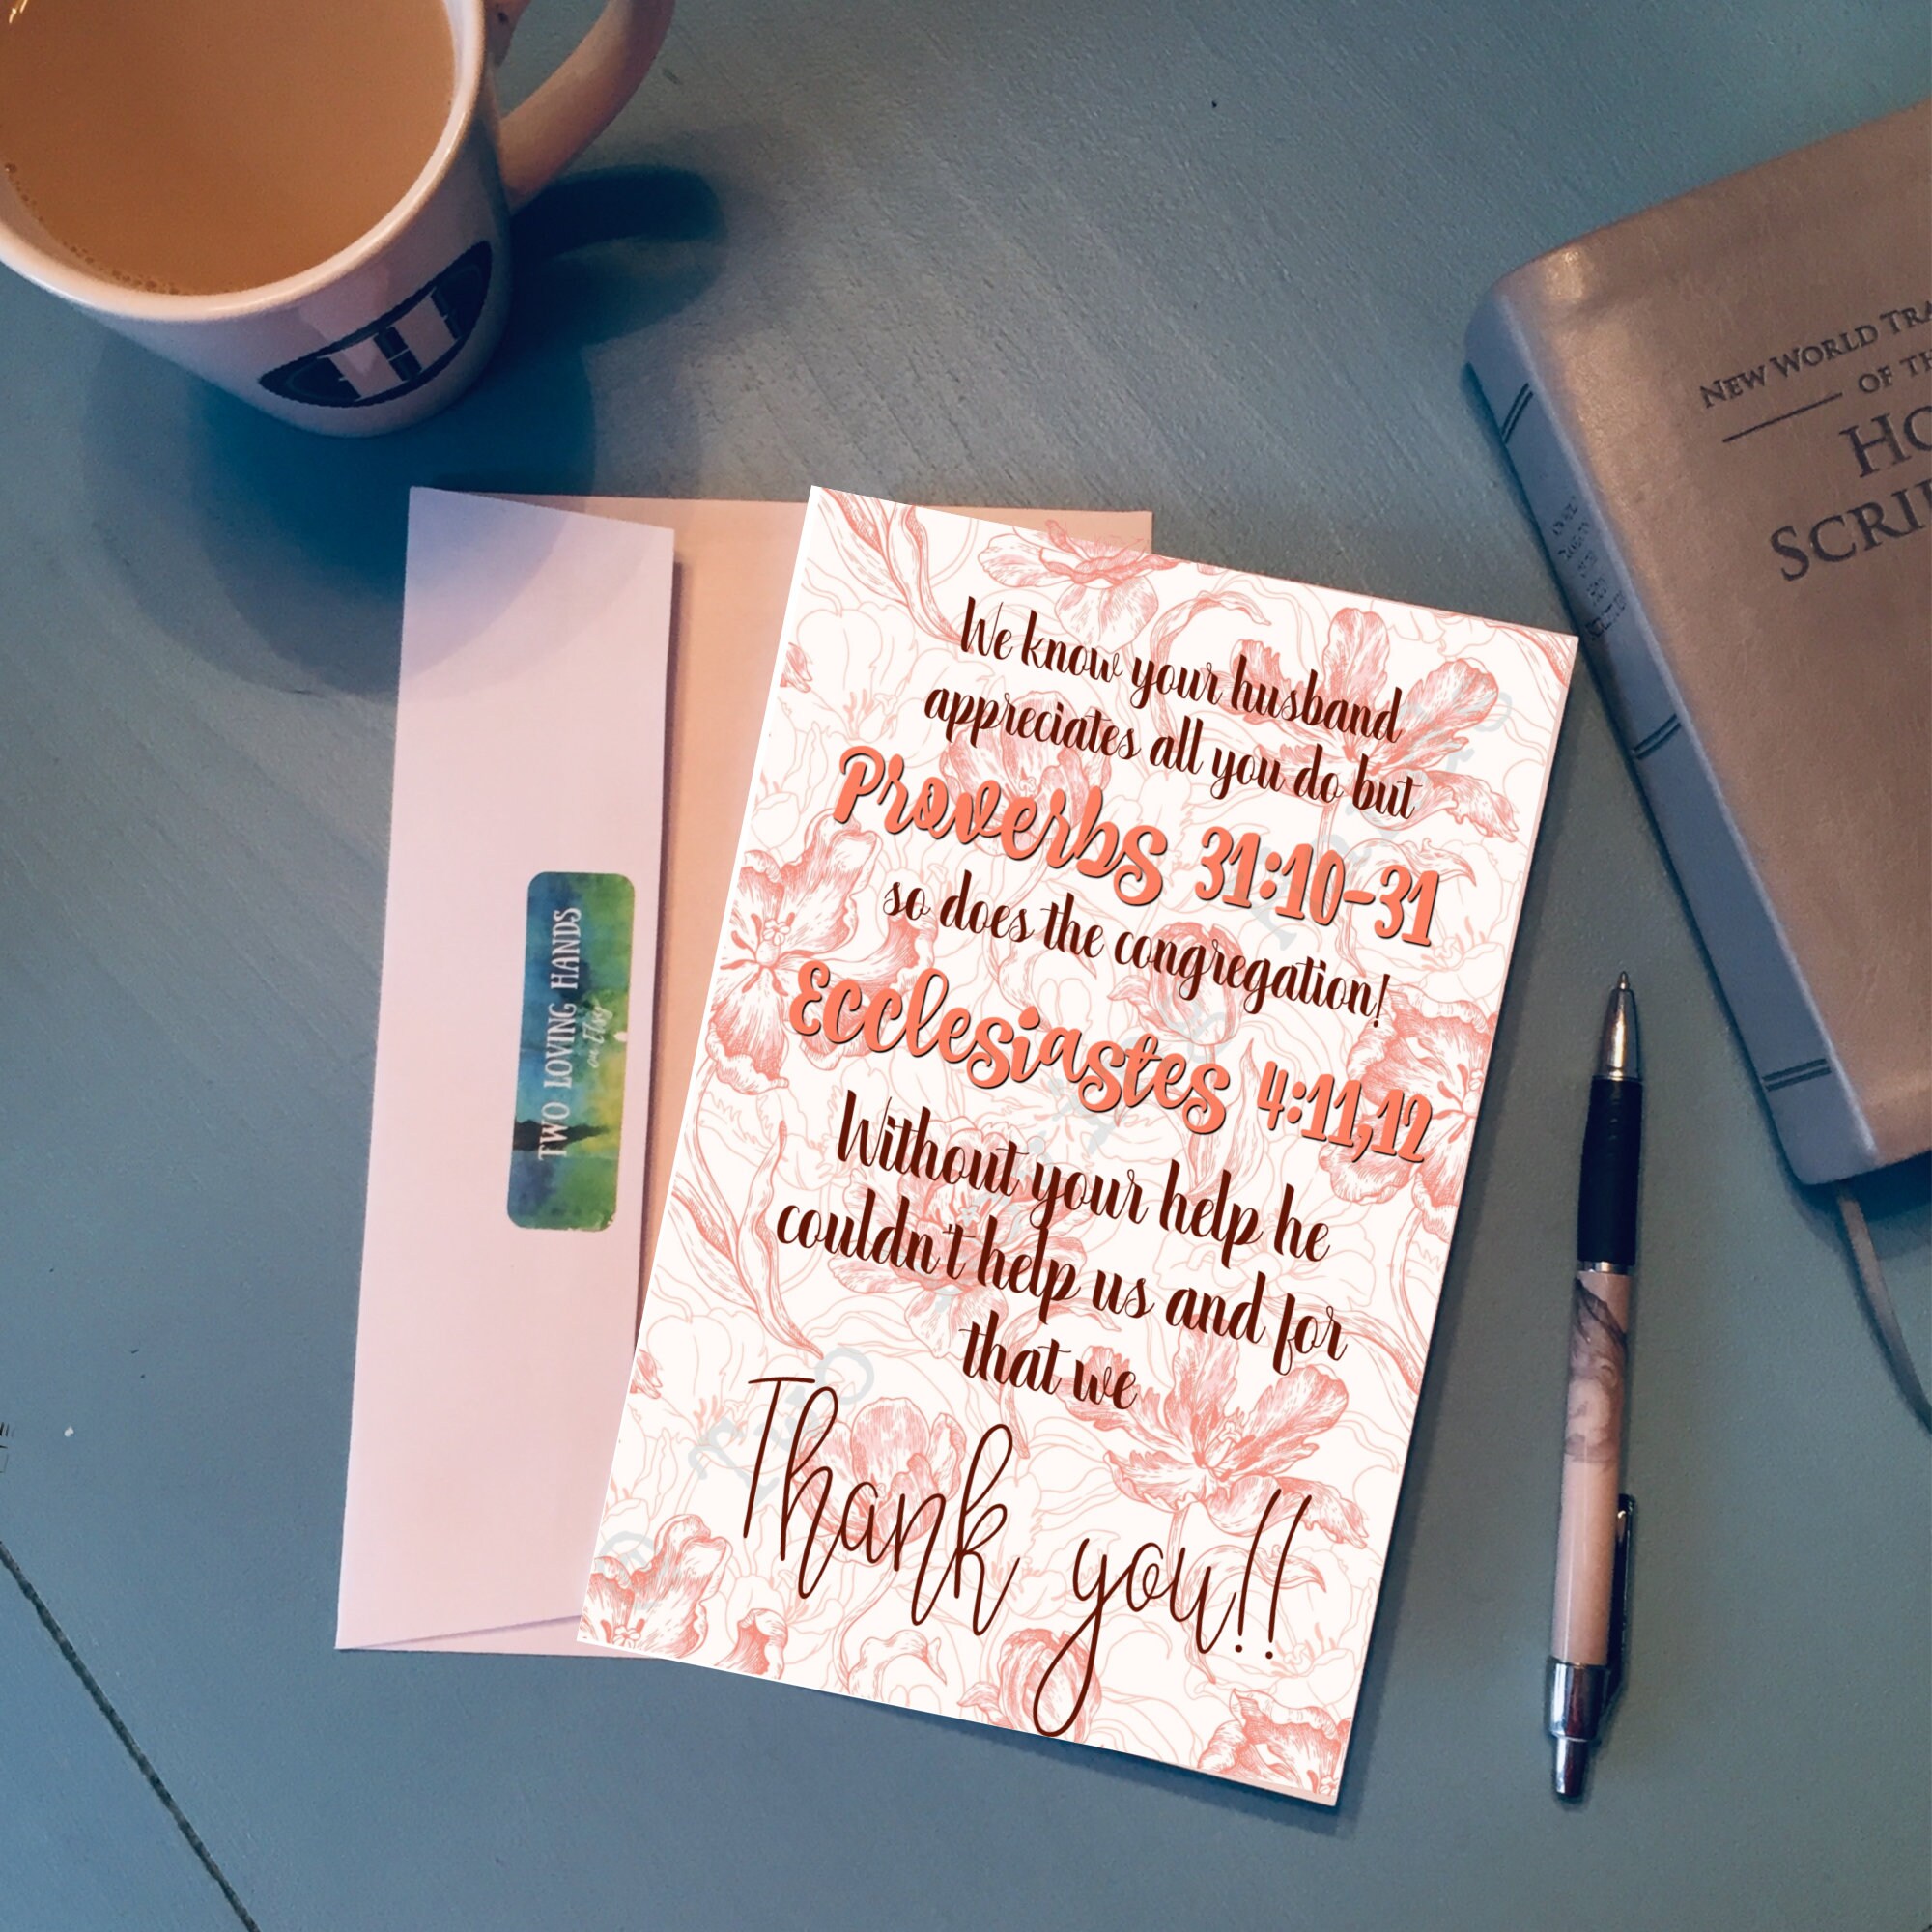 H
NEW WORLD TRA
OF TH
HO
SCRI
We know your husband
appreciates all you do but
Proverbs 31:10-31
so does the congregation!
Ecclesiastes 4:11,12
Without your help he
couldn't help us and for
that we
Thank you!!
TWO LOVING HANDS
on Etsy
© Two